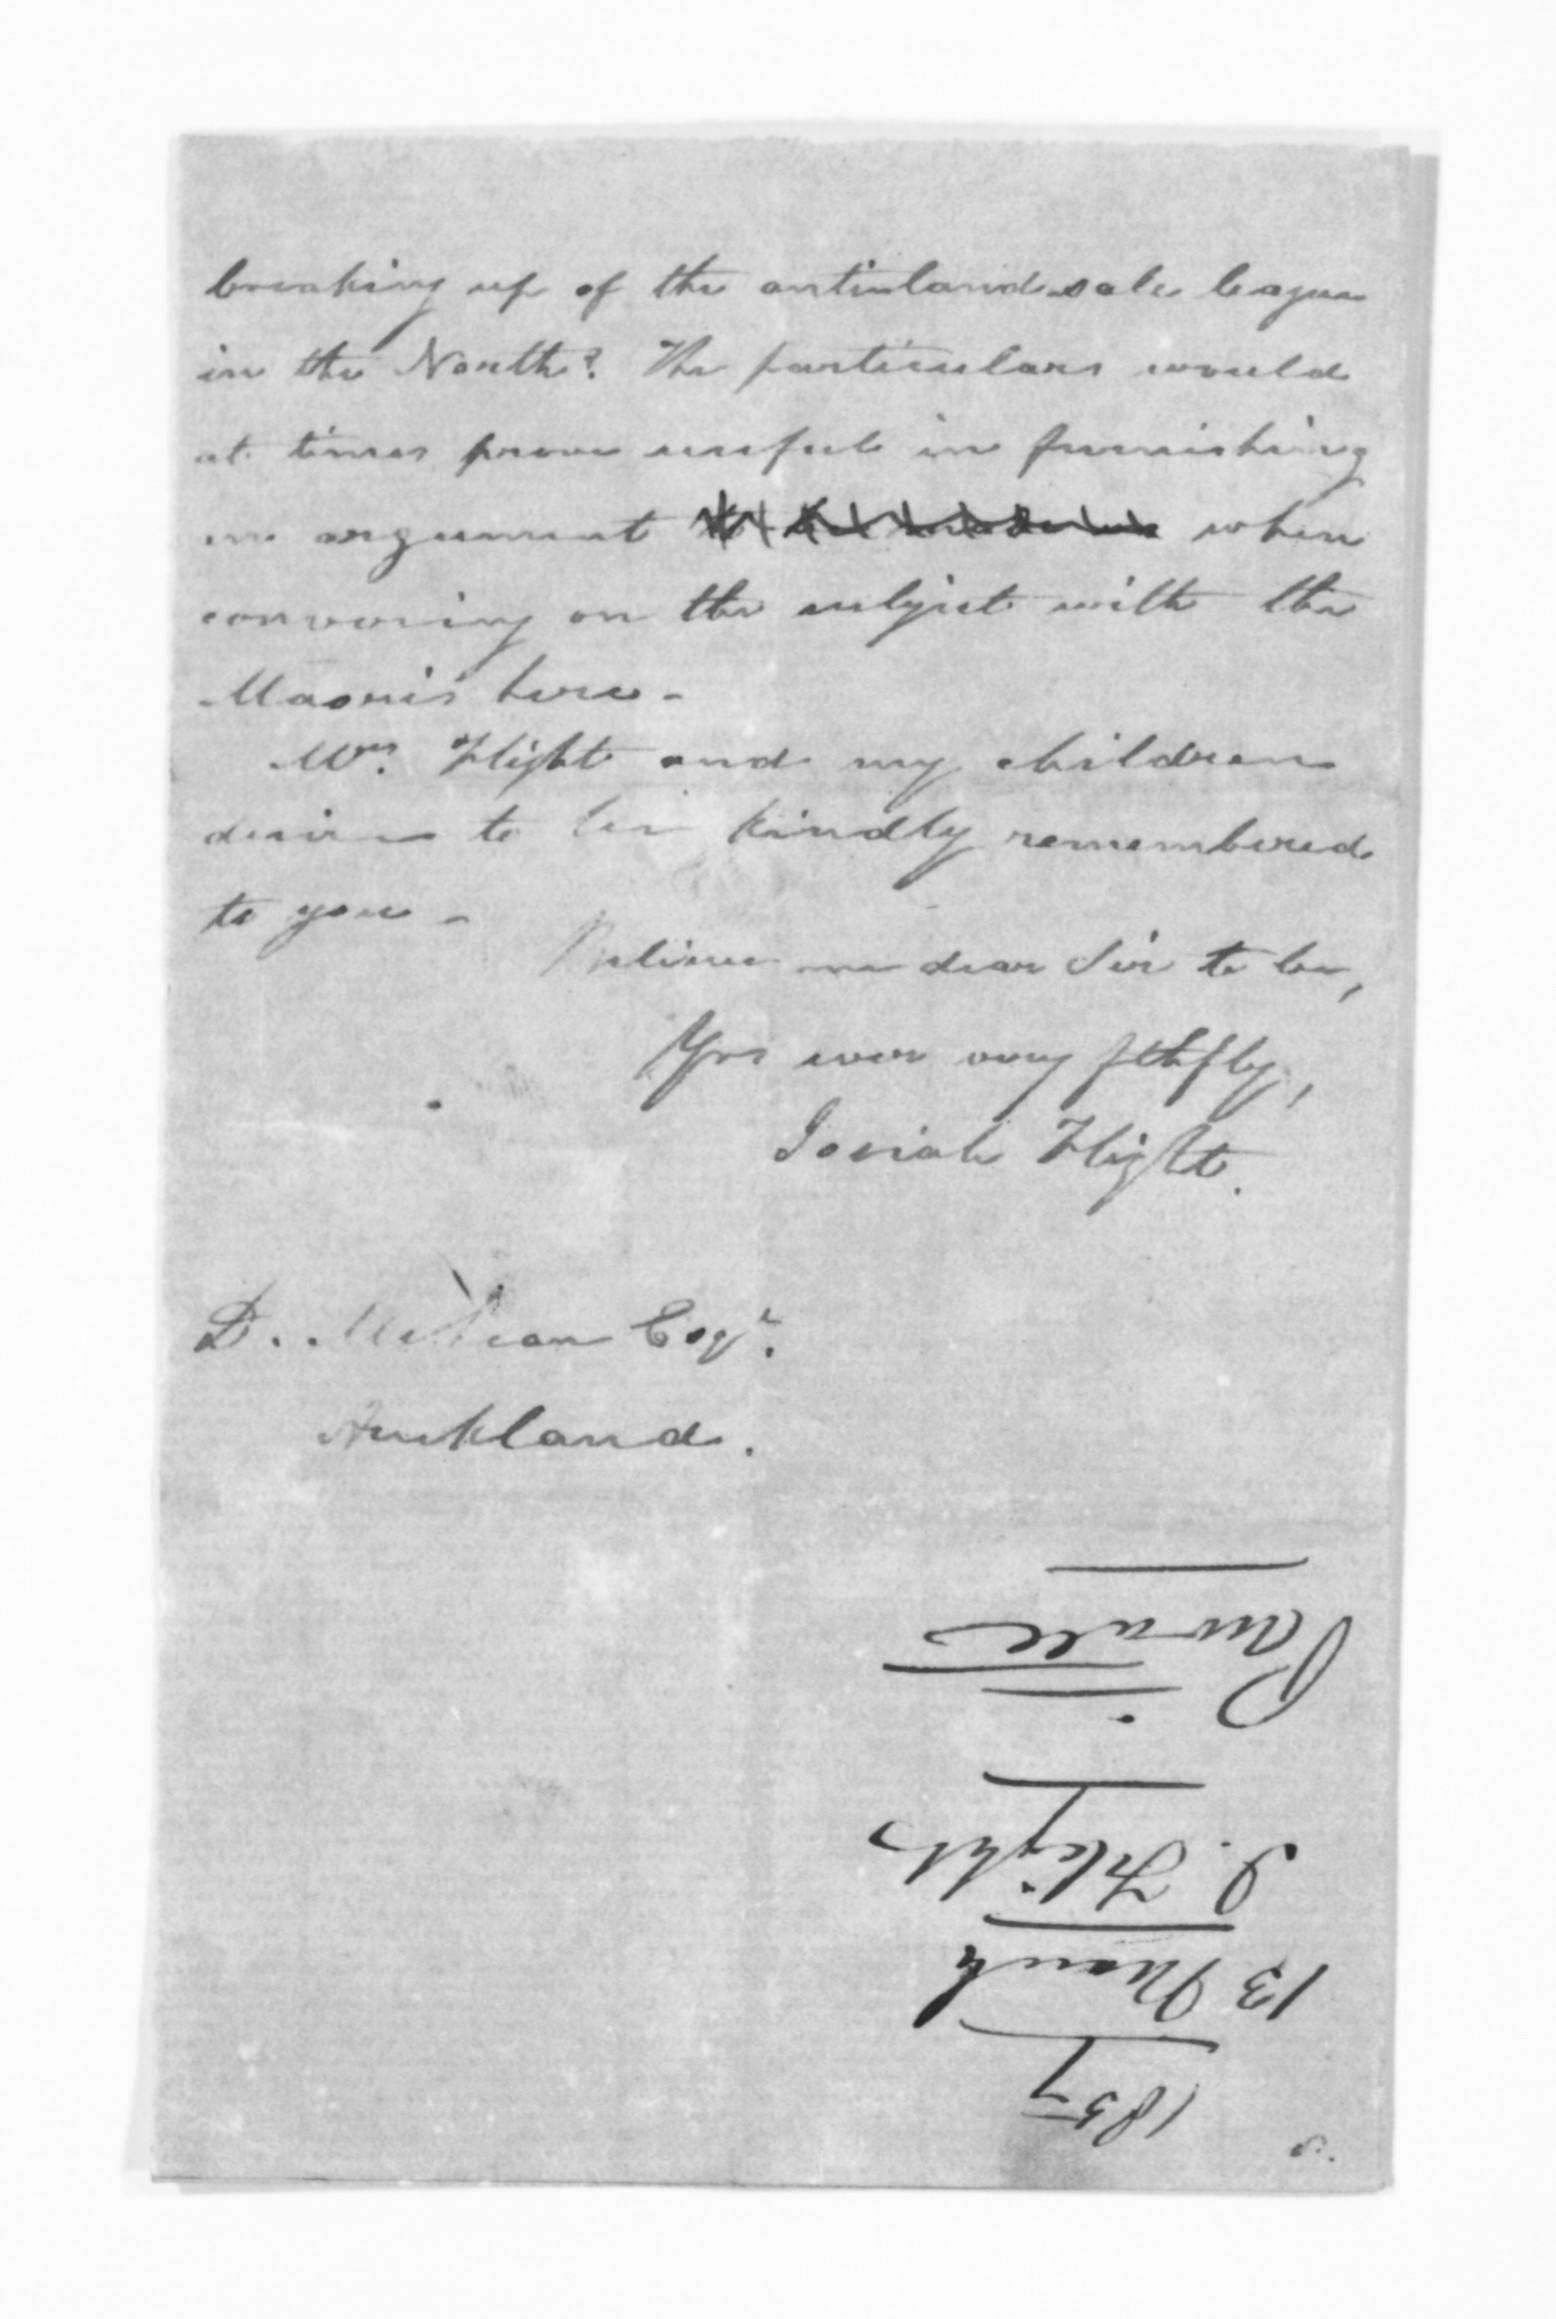 breaking up of the anti-land-sale league
in the North? The particulars would
at times prove useful in furnishing
me argument when
conversing on the subject with the
Maoris here -
Mrs. Flight and my children
desire to be kindly remembered
to you -
Believe me dear Sir to be,
Yrs ever very fthfly,
Josiah Flight.
D. McLean Esqr.
Auckland.
1857
13 March
J. Flight
Private